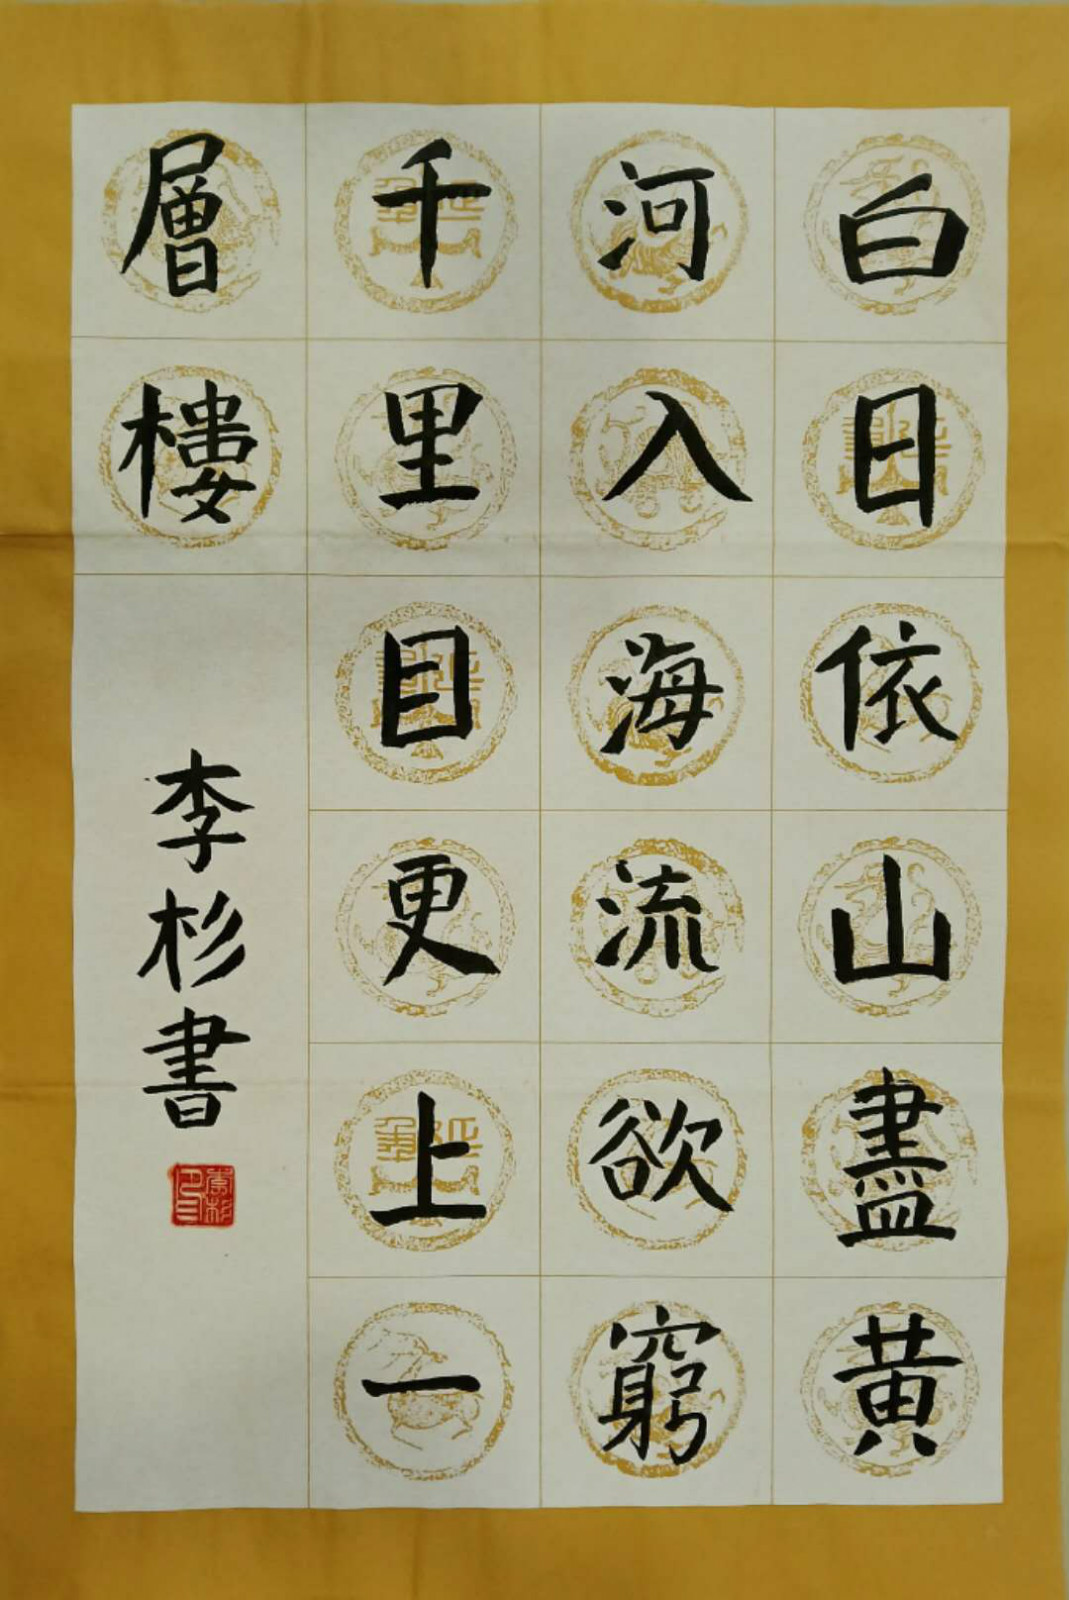 白日依山盡黃
河入海流欲窮
千里目更上一
層樓
李杉書
李杉